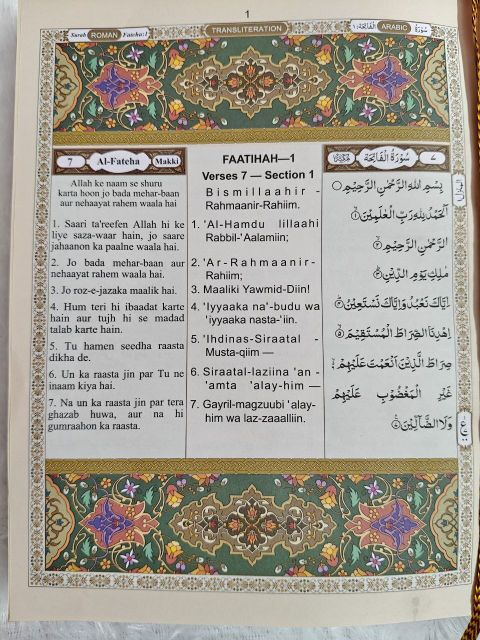 1
Surah ROMAN Fateha:1
TRANSLITERATION
سُوْرَةُ ARABIC الْفَاتِحَة:١
7 Al-Fateha Makki
Allah ke naam se shuru
karta hoon jo bada mehar-baan
aur nehaayat rahem waala hai
1. Saari ta'reefen Allah hi ke
liye saza-waar hain, jo saare
jahaanon ka paalne waala hai.
2. Jo bada mehar-baan aur
nehaayat rahem waala hai.
3. Jo roz-e-jazaka maalik hai.
4. Hum teri hi ibaadat karte
hain aur tujh hi se madad
talab karte hain.
5. Tu hamen seedha raasta
dikha de.
6. Un ka raasta jin par Tu ne
inaam kiya hai.
7. Na un ka raasta jin par tera
ghazab huwa, aur na hi
gumraahon ka raasta.
FAATIHAH—1
Verses 7 — Section 1
Bismillaahir -
Rahmaanir-Rahiim.
1. 'Al-Hamdu lillaahi
Rabbil-'Aalamiin;
2. 'Ar-Rahmaanir-
Rahiim;
3. Maaliki Yawmid-Diin!
4. 'Iyyaaka na'-budu wa
'iyyaaka nasta-'iin.
5. 'Ihdinas-Siraatal -
Musta-qiim —
6. Siraatal-laziina 'an -
'amta 'alay-him —
7. Gayril-magzuubi 'alay-
him wa laz-zaaalliin.
٧ سُوْرَةُ الْفَاتِحَةِ مَكِّيَّةٌ
بِسْمِ اللّٰهِ الرَّحْمٰنِ الرَّحِيْمِ
اَلْحَمْدُ لِلّٰهِ رَبِّ الْعٰلَمِيْنَ ①
الرَّحْمٰنِ الرَّحِيْمِ ②
مٰلِكِ يَوْمِ الدِّيْنِ ③
اِيَّاكَ نَعْبُدُ وَاِيَّاكَ نَسْتَعِيْنُ ④
اِهْدِنَا الصِّرَاطَ الْمُسْتَقِيْمَ ⑤
صِرَاطَ الَّذِيْنَ اَنْعَمْتَ عَلَيْهِمْ ⑥
غَيْرِ الْمَغْضُوْبِ عَلَيْهِمْ
وَلَا الضَّآلِّيْنَ ⑦